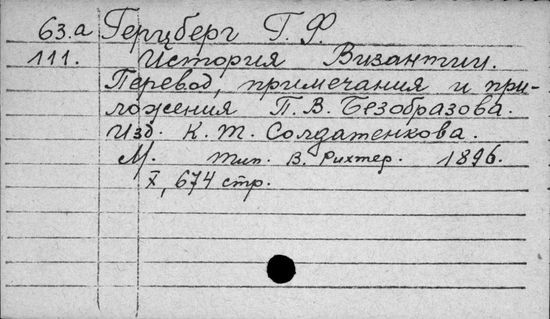 63.а Герцберг Г. Ф.
111. История Византии.
Перевод, примечания и при-
ложения П. В. Безобразова.
Изд. К. Т. Солдатенкова.
М. Тип. В. Рихтер. 1896.
X, 674 стр.